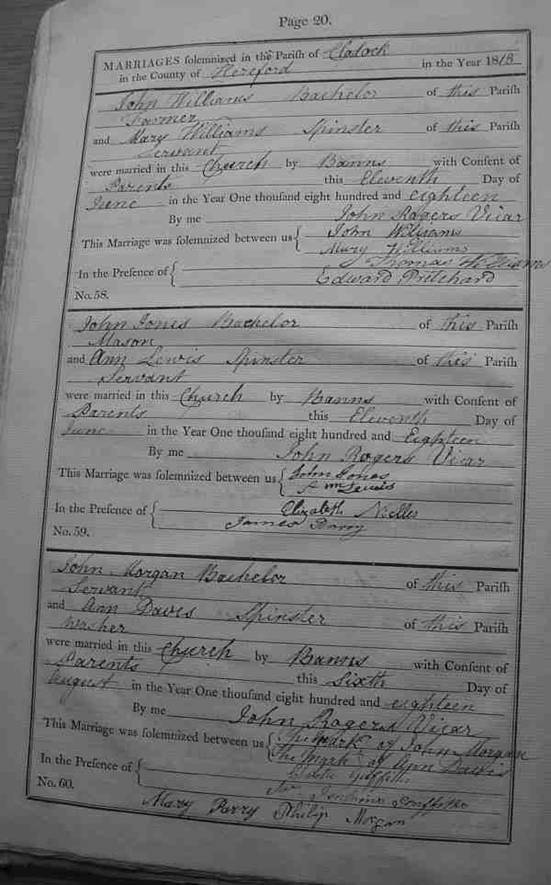 Page 20.
MARRIAGES solemnized in the Parish of Clodock
in the County of Hereford in the Year 1818
John Williams Bachelor of this Parish
Farmer
and Mary Williams Spinster of this Parish
Servant
were married in this Church by Banns with Consent of
Parents this Eleventh Day of
June in the Year One thousand eight hundred and eighteen
By me John Rogers Vicar
This Marriage was solemnized between us { John Williams
Mary Williams
In the Presence of { Thomas Williams
Edward Pritchard
No. 58.
John Jones Bachelor of this Parish
Mason
and Ann Lewis Spinster of this Parish
Servant
were married in this Church by Banns with Consent of
Parents this Eleventh Day of
June in the Year One thousand eight hundred and Eighteen
By me John Rogers Vicar
This Marriage was solemnized between us { John Jones
Ann Lewis
In the Presence of { Elizabeth
James Parry
No. 59.
John Morgan Bachelor of this Parish
Servant
and Ann Davis Spinster of this Parish
were married in this Church by Banns with Consent of
Parents this Sixth Day of
August in the Year One thousand eight hundred and eighteen
By me John Rogers Vicar
This Marriage was solemnized between us { The mark of John Morgan
The mark of Ann Davis
In the Presence of {
No. 60.
Mary Parry Philip Morgan